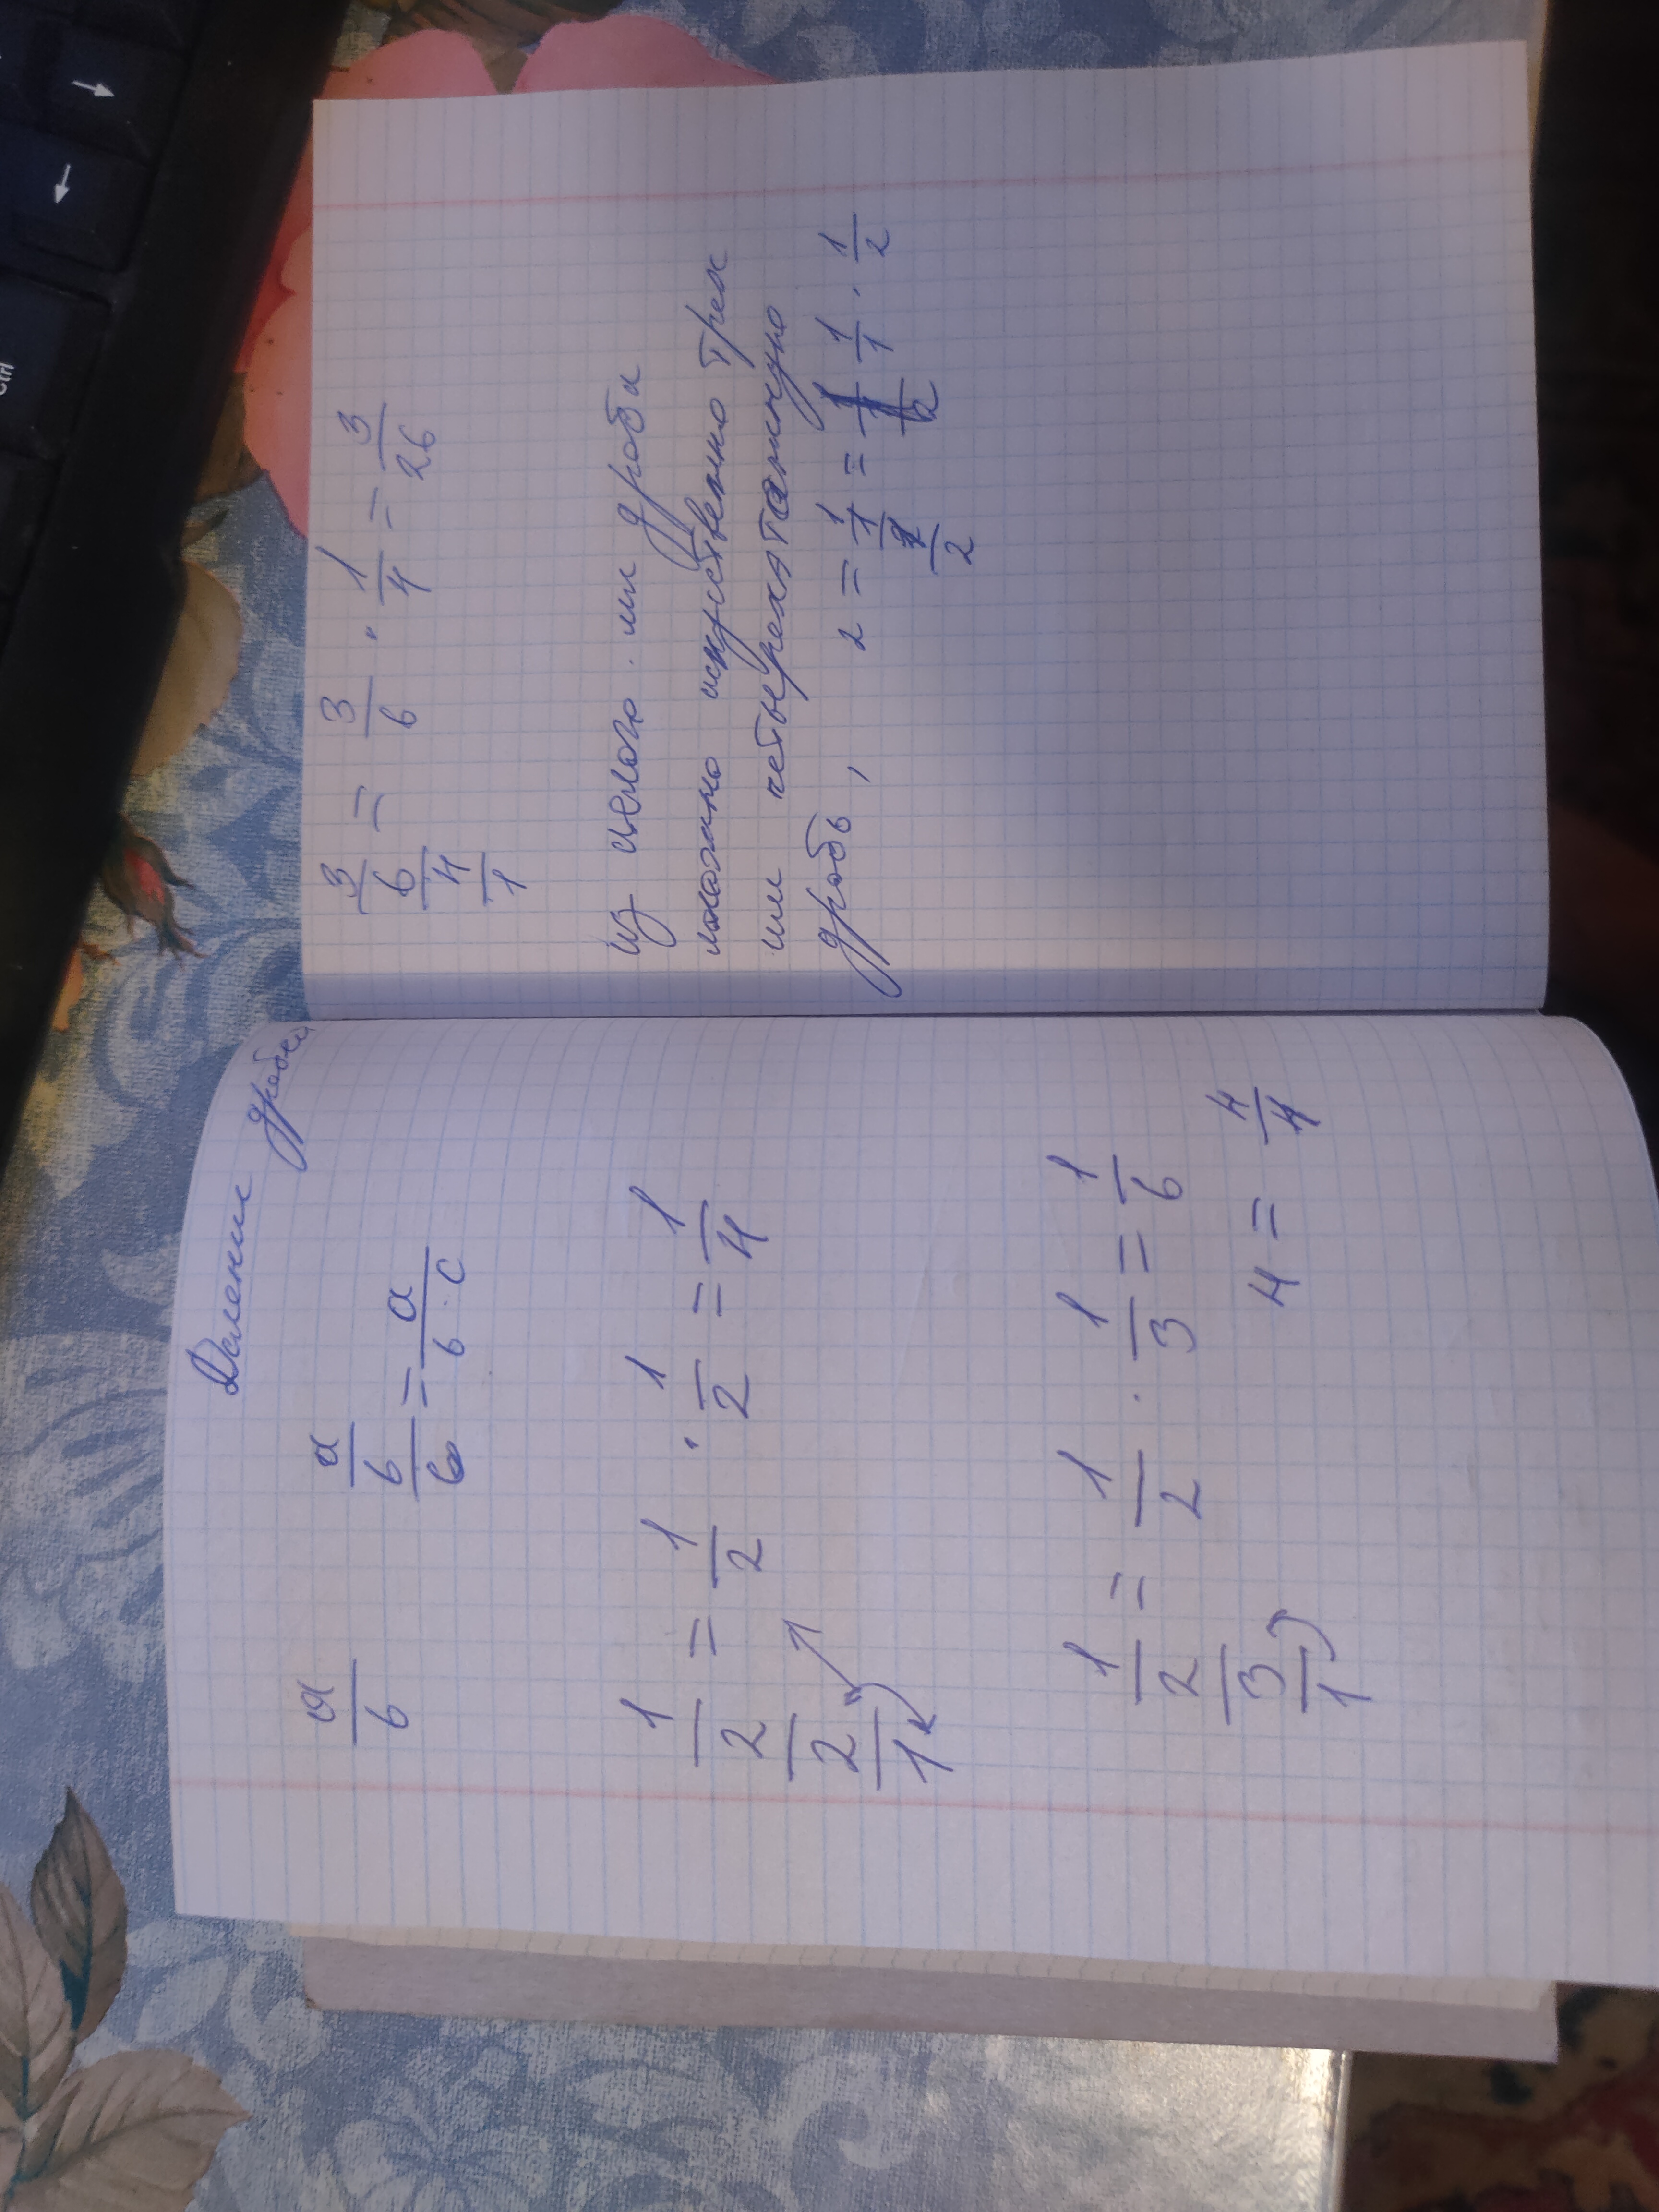 Деление дробей
a/b
a/b/b = a/b·c
1/2/2/1 = 1/2 · 1/2 = 1/4
1/2/3/1 = 1/2 · 1/3 = 1/6
4 = 4/4
3/6/4/1 = 3/6 · 1/4 = 3/26
из целого. или дроби
можно искуственно трех
или четырехэтажную
дробь, 2 = 1/1/1/2 = 1/1 · 1/2
Ctrl
→
↓